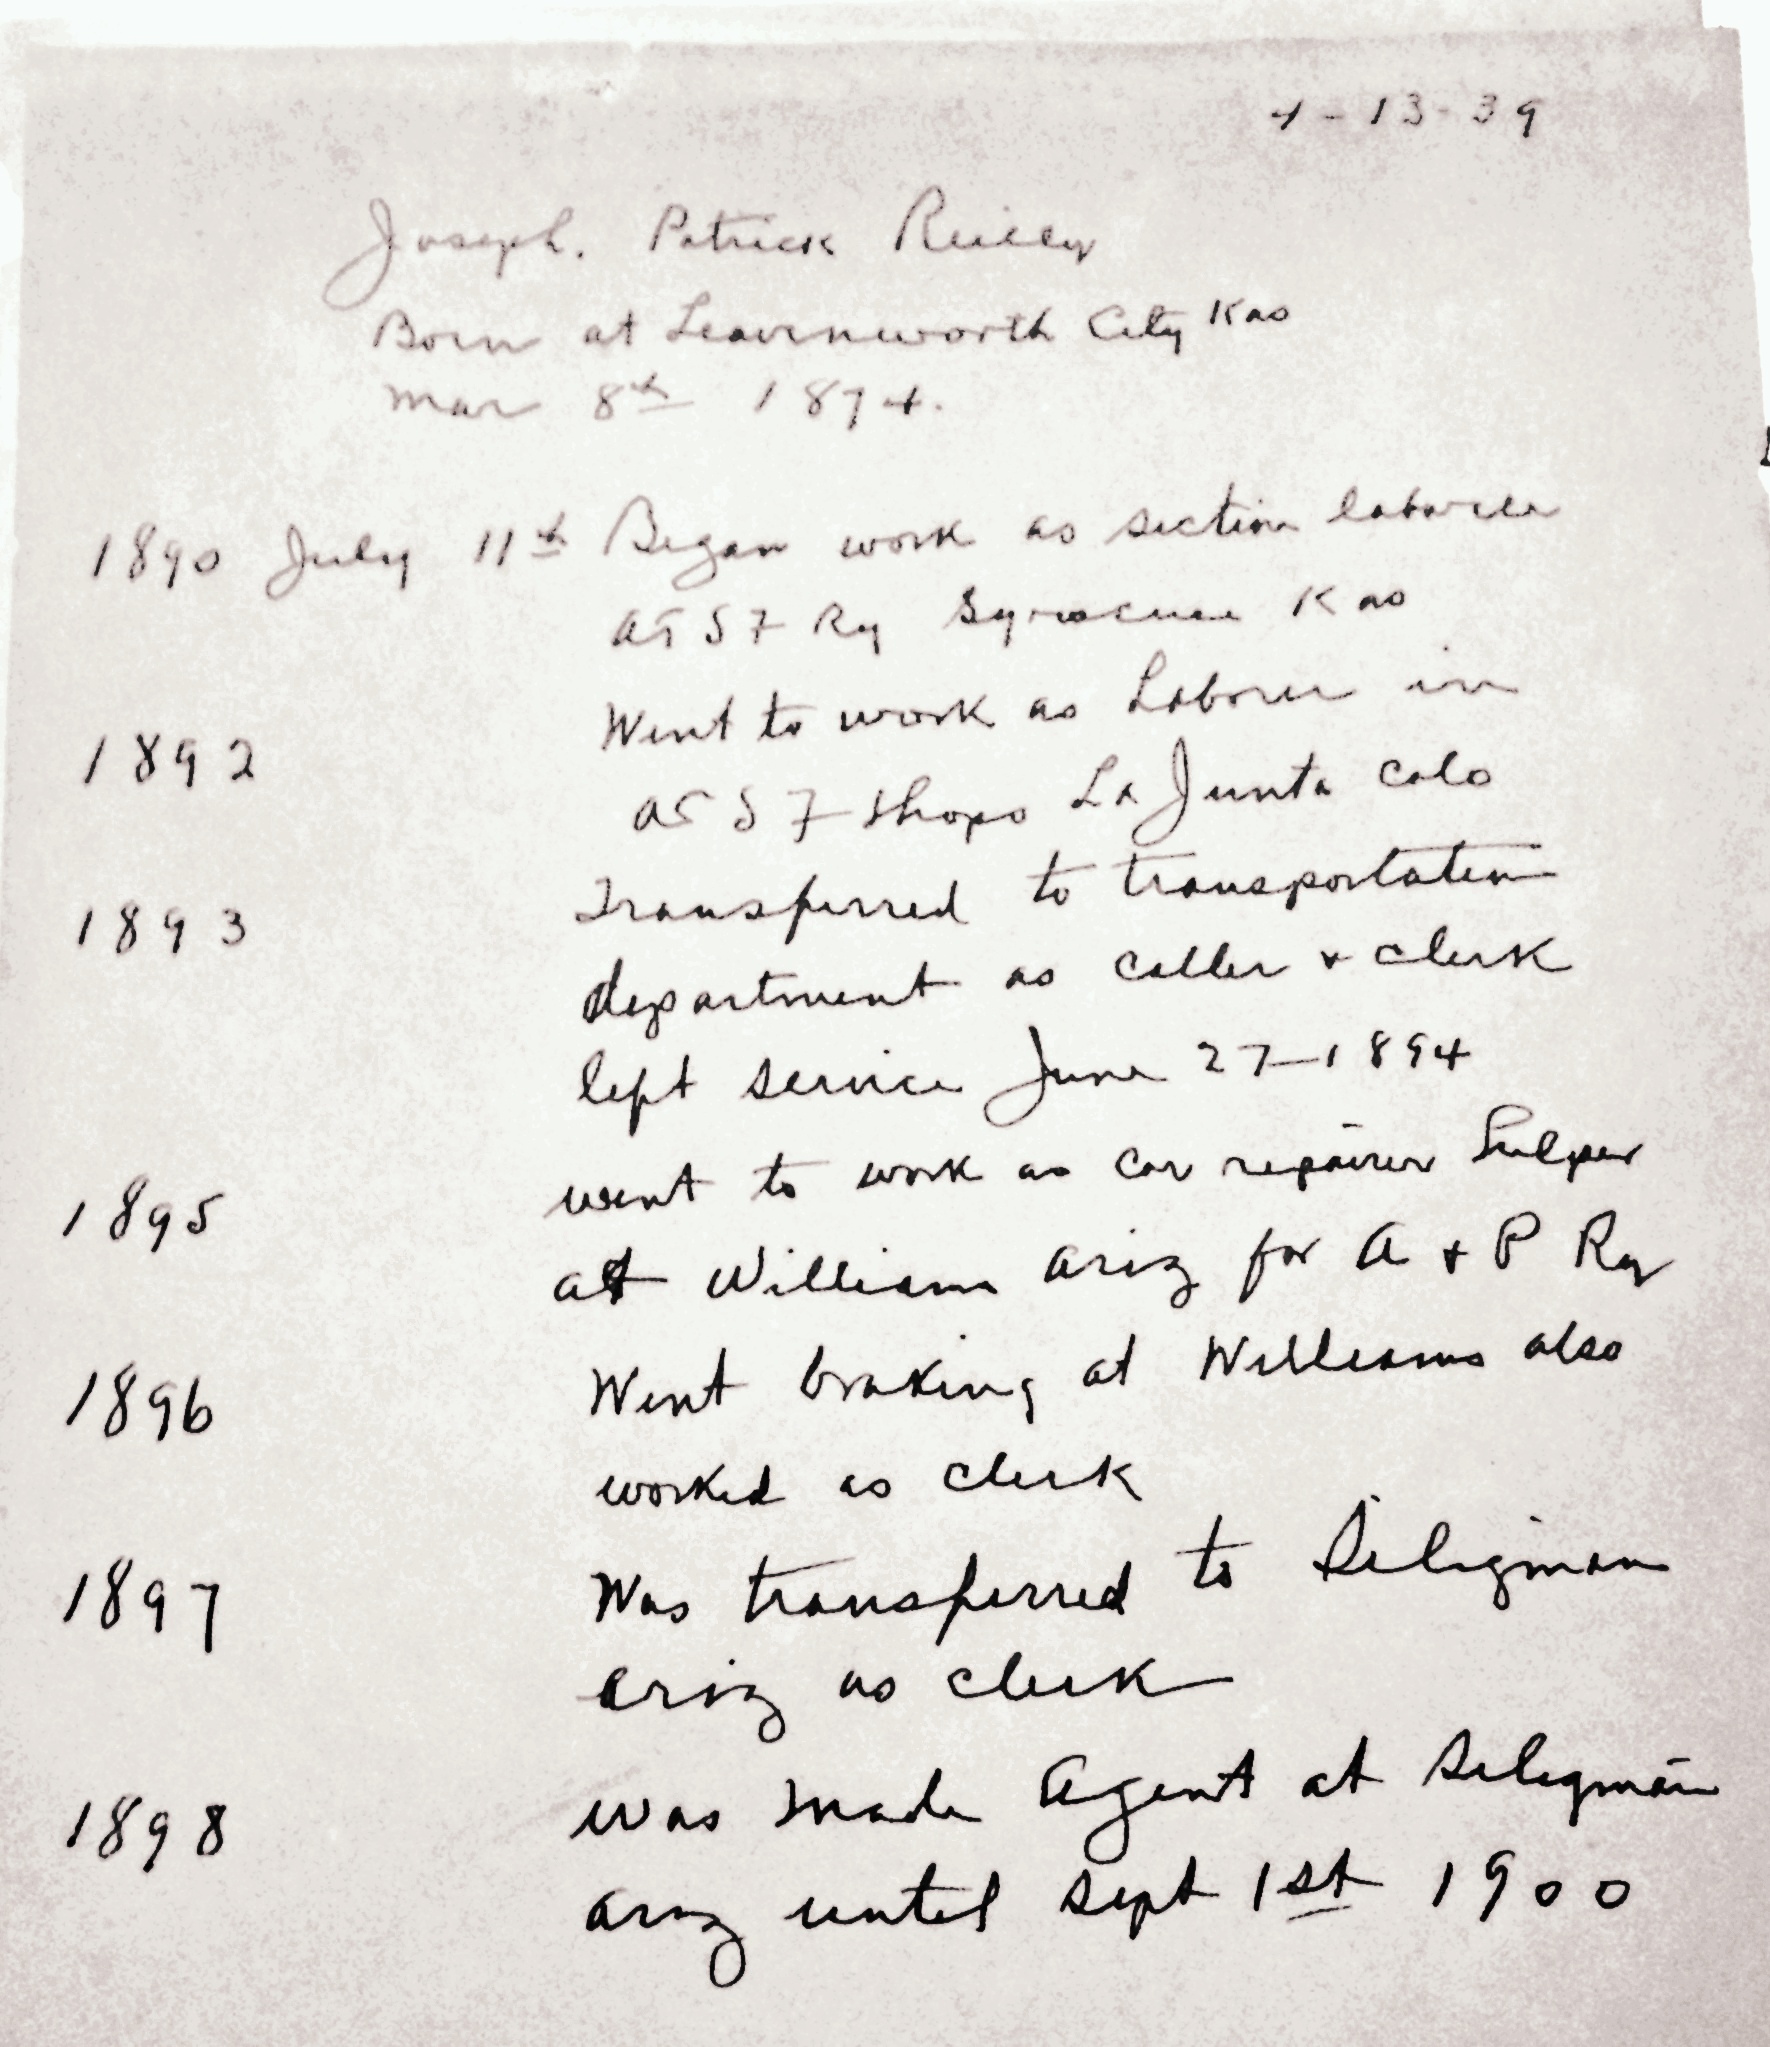 4-13-39
Joseph. Patrick Reilly
Born at Leavenworth City Kas
Mar 8th 1874.
1890 July 11th Began work as section laborer
AT S F Ry Syracuse Kas
1892 Went to work as Laborer in
AT S F Shops La Junta Colo
1893 Transferred to transportation
department as caller + clerk
left service June 27-1894
1895 went to work as car repairer helper
at Williams Ariz for A + P Ry
1896 Went braking at Williams also
worked as clerk
1897 Was transferred to Seligman
Ariz as clerk
1898 was made Agent at Seligman
Ariz until Sept 1st 1900